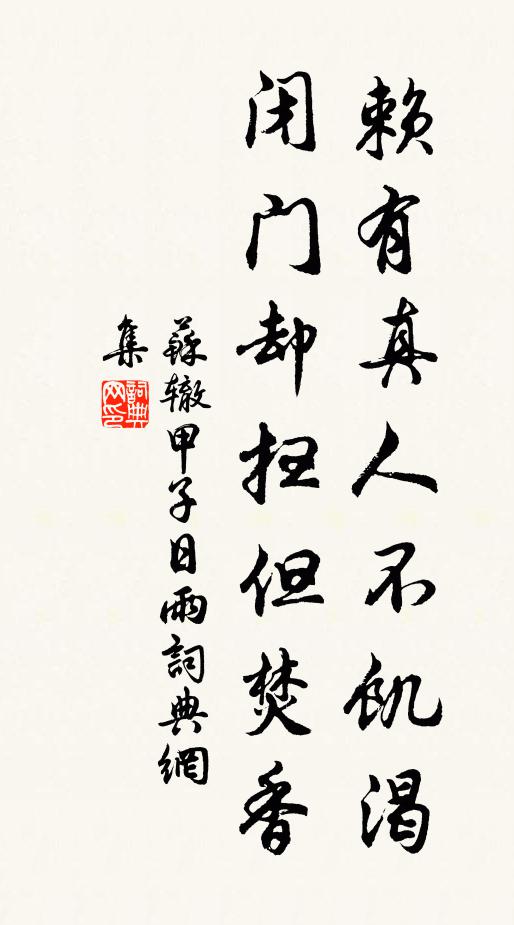 赖有真人不飢渴
闭门却扫但焚香
蘇辙甲子日雨詞典網
集
詞典网印